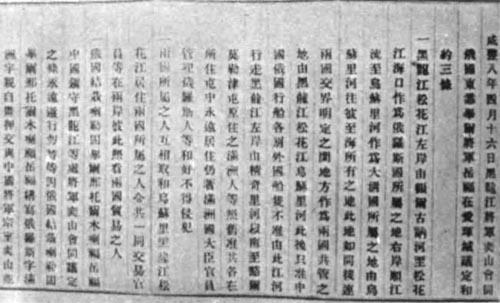 咸豐八年四月十六日黑龍江將軍奕山會同
俄國東悉畢爾將軍岳福在愛琿城議定和
約三條
一黑龍江松花江左岸由額爾古訥河至松花
江海口作爲俄羅斯國所屬之地右岸順江
流至烏蘇里河作爲大淸國所屬之地由烏
蘇里河往彼至海所有之地此地如同接連
兩國交界明定之間地方作爲兩國共管之
地由黑龍江松花江烏蘇里河此後只准中
國俄國行船各別外國船隻不准由此江河
行走黑龍江左岸由精奇里河以南至豁爾
莫勒津屯原住之滿洲人等照舊准其各在
所住屯中永遠居住仍著滿洲國大臣官員
管理俄羅斯人等和好不得侵犯
一兩國所屬之人互相取和烏蘇里黑龍江松
花江居住兩國所屬之人令其一同交易官
員等在兩岸彼此照看兩國貿易之人
一俄國結聶喇勒固畢爾那托爾木喇福岳福
中國鎮守黑龍江等處將軍奕山會同議定
之條永遠遵行勿替等因俄國結聶喇勒固
畢爾那托爾木喇福岳福繕寫俄羅斯字滿
洲字親自畫押交與中國將軍宗室奕山並